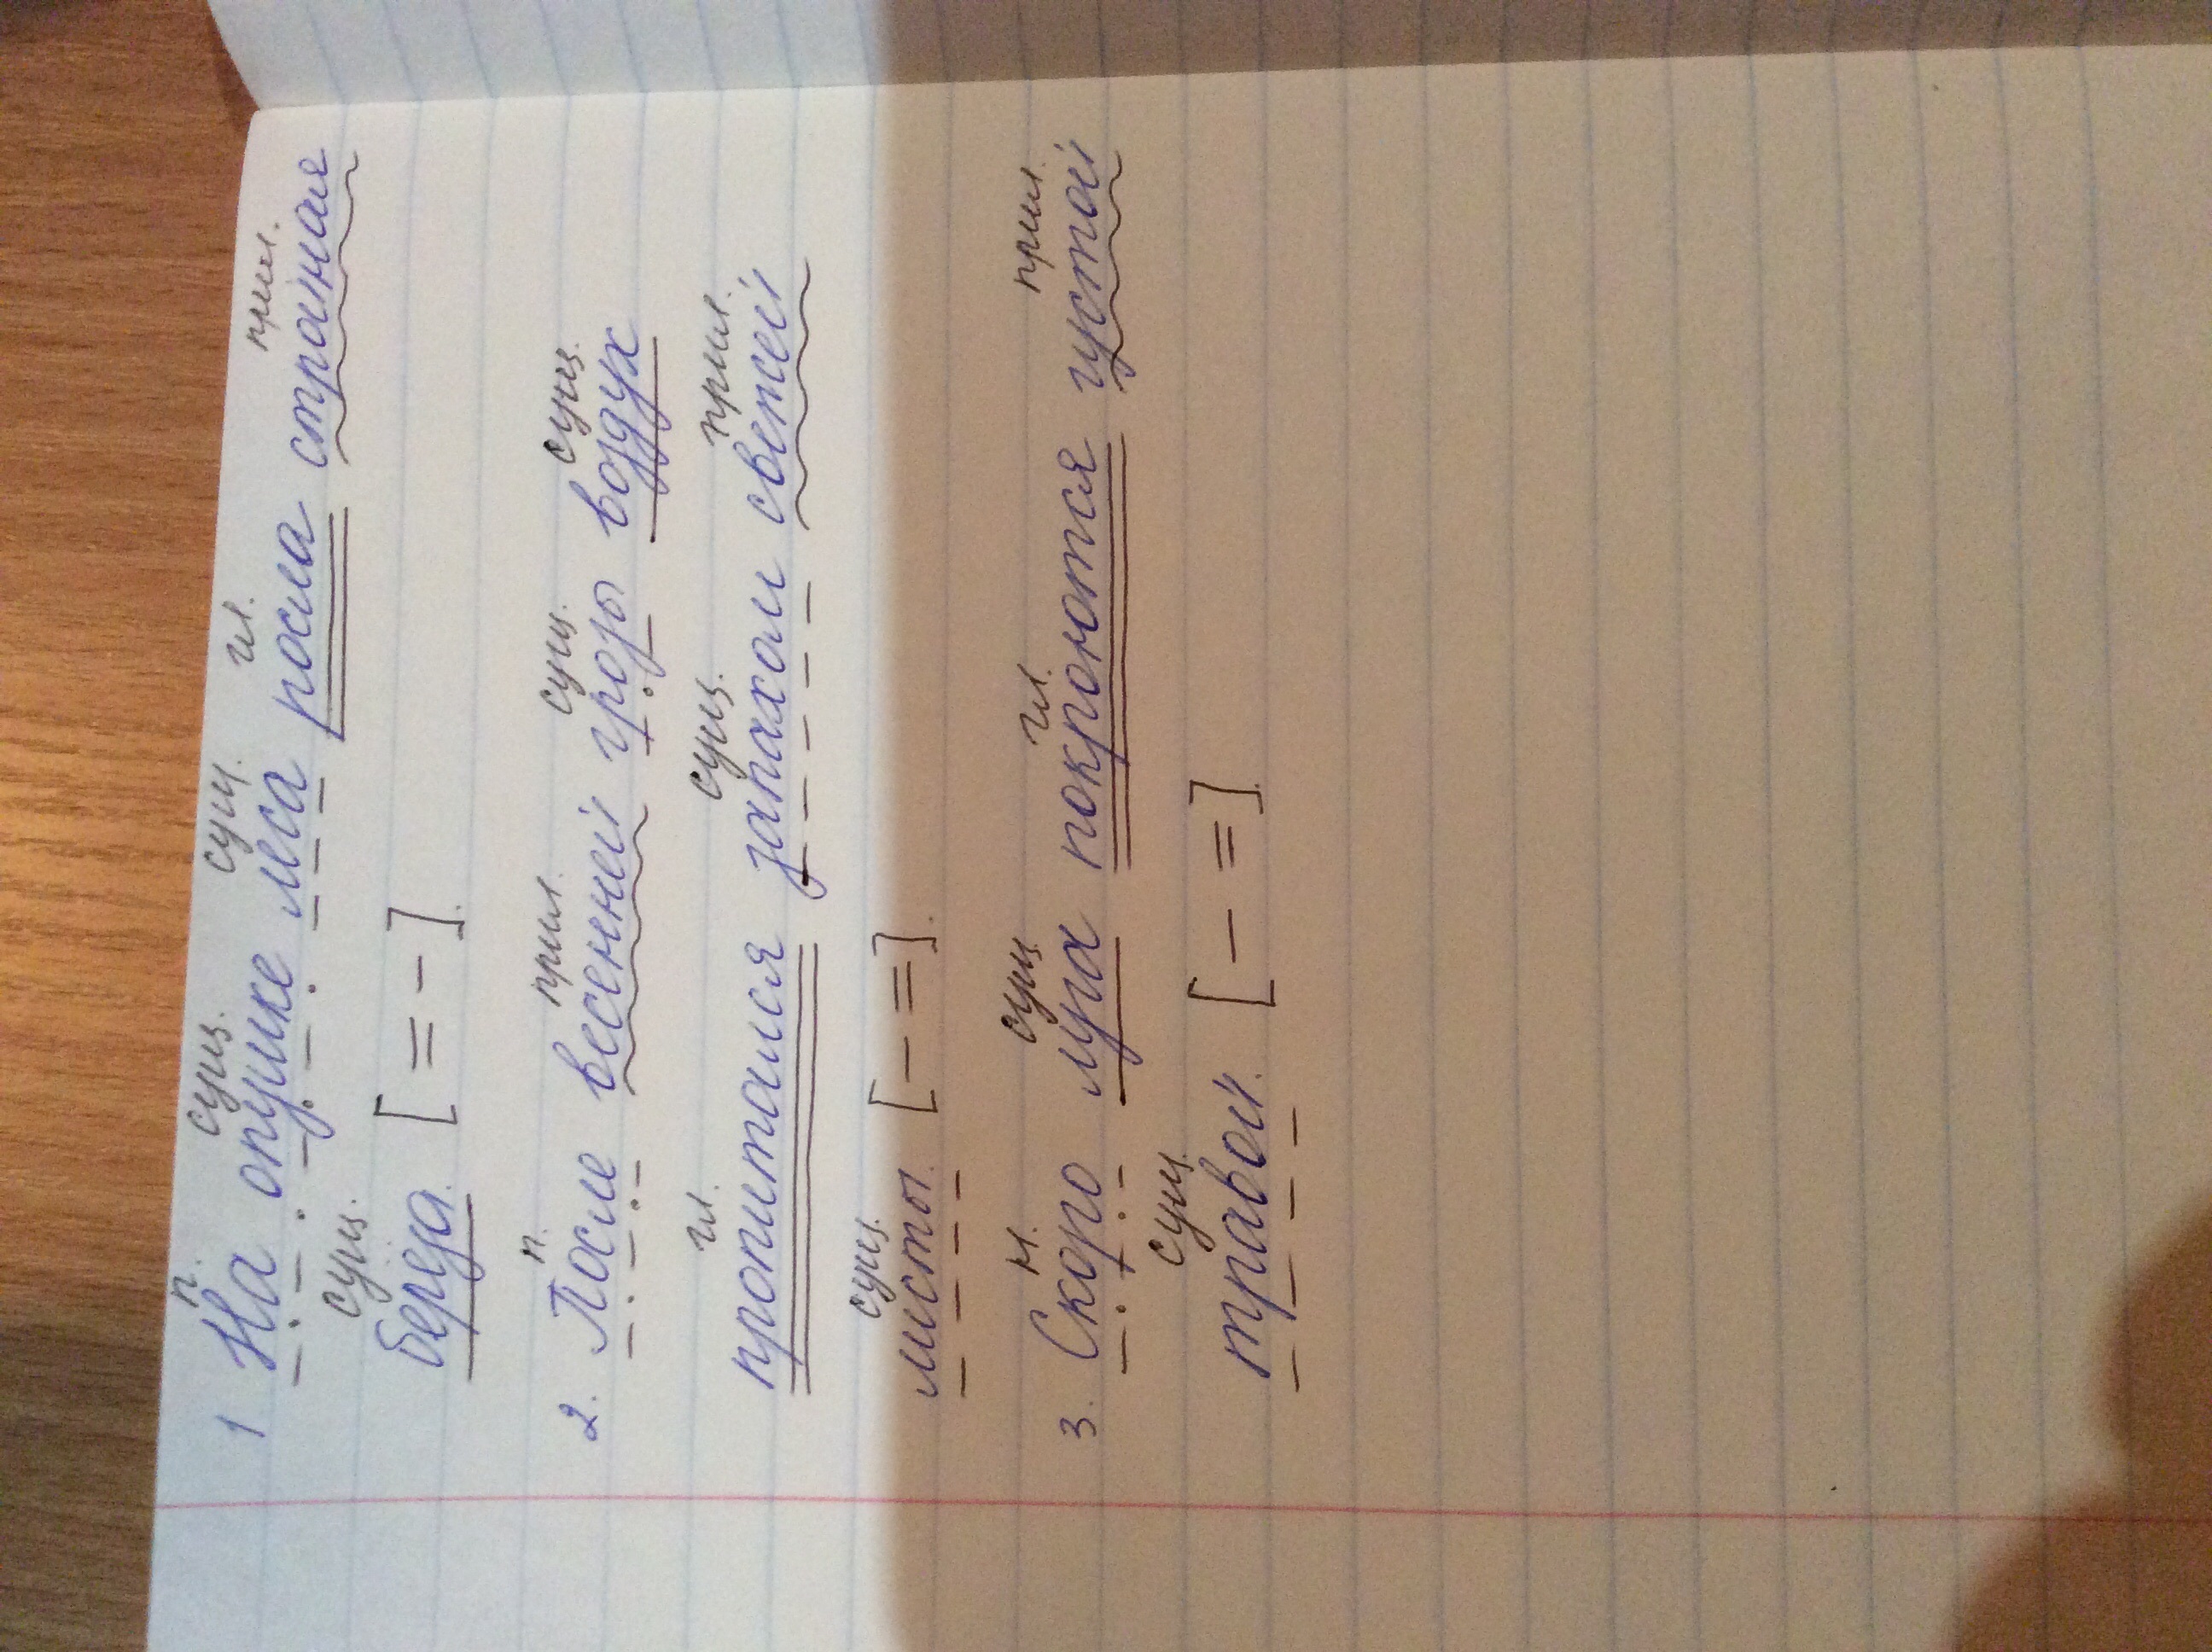 п. сущ. сущ. гл. прил.
1 На опушке леса росла странная
сущ.
береза. [= -].
п. прил. сущ. сущ.
2. После весенней грозы воздух
гл. сущ. прил.
пропитался запахом свежей
сущ.
листы. [- =].
н. сущ гл. прил.
3. Скоро луга покроются густой
сущ.
травой. [- =].